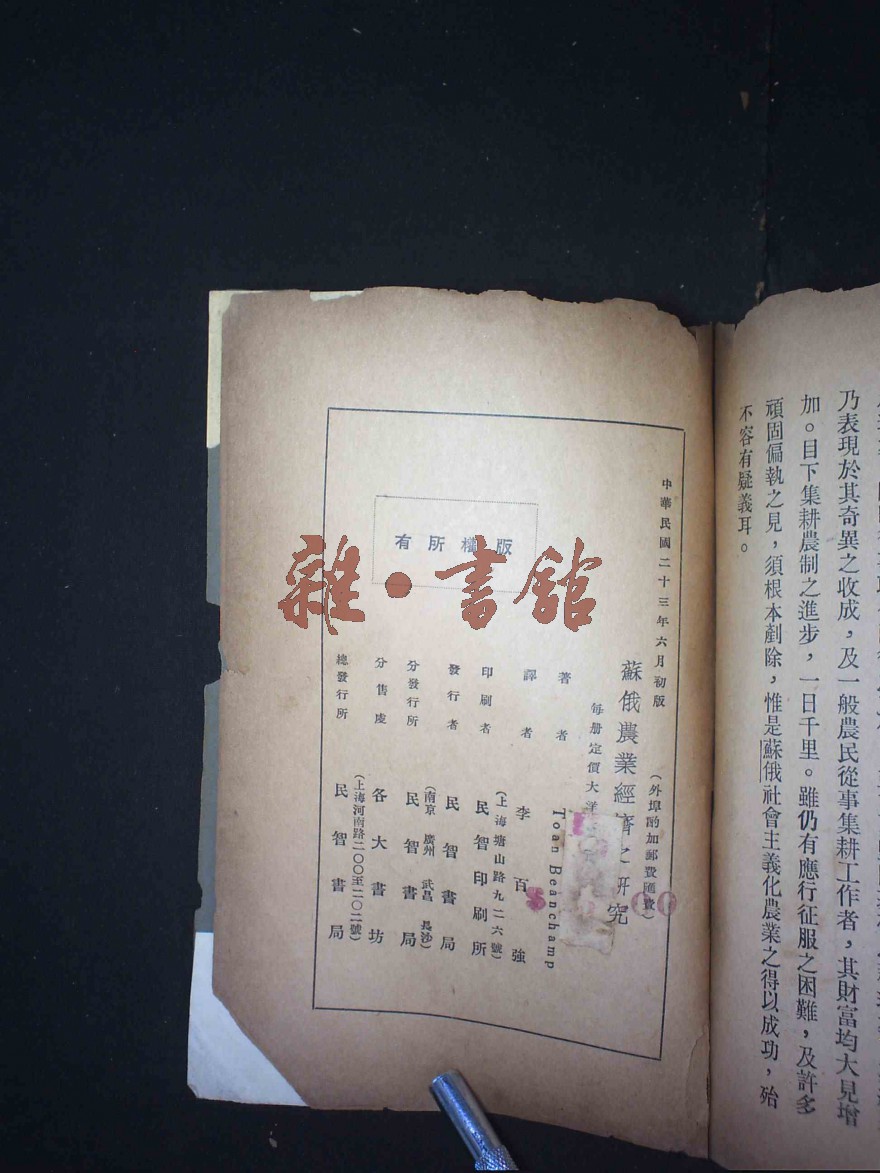 乃表現於其奇異之收成，及一般農民從事集耕工作者，其財富均大見增
加。目下集耕農制之進步，一日千里。雖仍有應行征服之困難，及許多
頑固偏執之見，須根本剷除，惟是蘇俄社會主義化農業之得以成功，殆
不容有疑義耳。
中華民國二十三年六月初版
蘇俄農業經濟之研究
（外埠酌加郵費匯費）
每册定價大洋
著者 Toan Beanchamp
譯者 李百強
印刷者 民智印刷所
（上海塘山路九二六號）
發行者 民智書局
分發行所 民智書局
（南京 廣州 武昌 長沙）
分售處 各大書坊
總發行所 民智書局
（上海河南路二〇〇至二〇二號）
版權所有
雜·書館